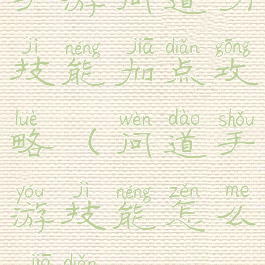 jì néng jiā diǎn gōng
技能加点攻
lüè wèn dào shǒu
略（问道手
yóu jì néng zěn me
游技能怎么
jiā diǎn